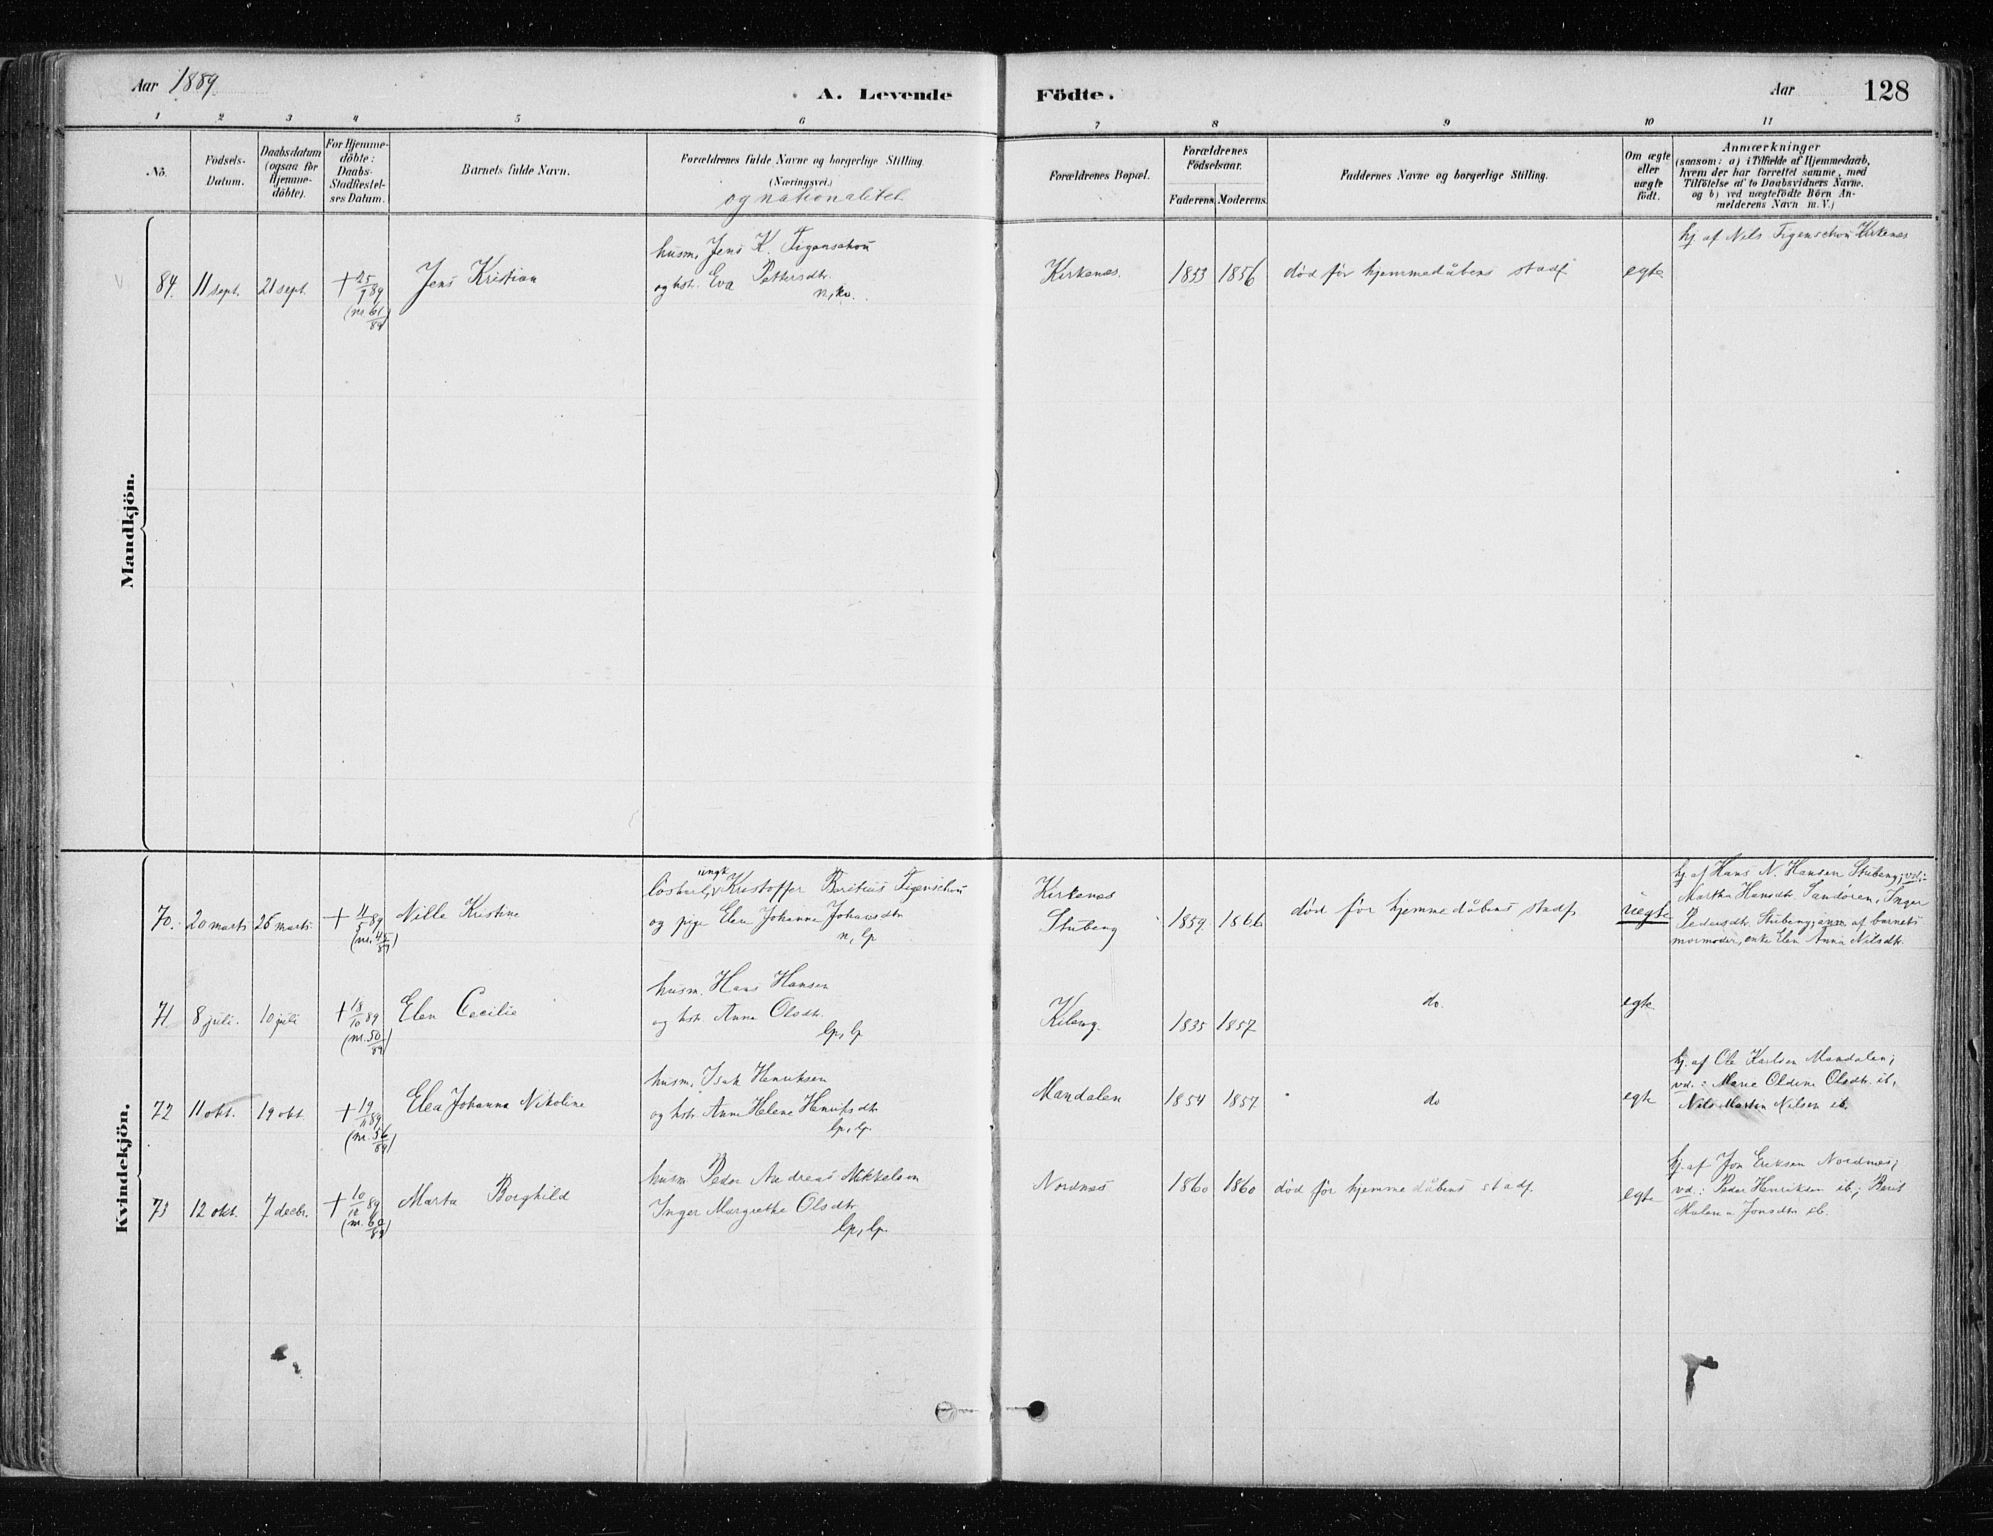 Aar 1889
A. Levende Födte.
Aar
128
1 2 3 4 5 6 7 8 9 10 11
No.
Födsels-
Datum.
Daabsdatum
(ogsaa for
Hjemme-
döbte).
For Hjemme-
döbte:
Daabs-
Stadfæstel-
ses Datum.
Barnets fulde Navn.
Forældrenes fulde Navne og borgerlige Stilling
(Næringsvei.)
og nationalitet.
Forældrenes Bopæl.
Forældrenes
Födselsaar.
Faderens. Moderens.
Faddernes Navne og borgerlige Stilling.
Om ægte
eller
uægte
födt.
Anmærkninger
(saasom: a) i Tilfælde af Hjemmedaab,
hvem der har forrettet samme, med
Tilföielse af to Daabsvidners Navne.
og b) ved uægtefödte Börn An-
melderens Navn m. V.)
Mandkjön.
84. 11 sept. 21 sept. + 25/9 89 (nr. 61/89)
Jens Kristian
husm. Jens K. Figenschou
og hstr. Eva Pettersdtr.
n, kv.
Kirkenes. 1853 1856
død før hjemmedåbens stadf.
egte
hj af Nils Figenschou Kirkenes
Kvindekjön.
70. 20 marts 26 marts + 4/5 89 (nr. 45/89)
Nille Kristine
ungk.
løskarl, Kristoffer Beritius Figenschou
og pige Elen Johanna Johansdtr.
n, lp
Kirkenes
Stubeng
1859 1866
død før hjemmedåbens stadf.
uegte
hj. af Hans N. Hansen Stubeng; vd.:
Martha Hansdtr. Sandøren, Inger
Pedersdtr. Stubeng; anm. af barnets
mormoder, enke Elen Anna Nilsdtr.
71 8 juli. 10 juli + 18/10 89 (nr. 50/89)
Elen Cecilie
husm. Hans Hansen
og hstr. Anna Olsdtr.
lp, lp
Kileng. 1835 1857
do.
egte
72 11 okt. 19 okt. + 19/11 89 (nr. 56/89)
Elea Johanna Nikoline
husm. Isak Henriksen
og hstr. Anne Helene Henriksdtr.
lp, lp.
Mandalen 1854 1857
do
egte
hj. af Ole Karlsen Mandalen;
vd.: Marie Oldine Olsdtr. ib.,
Nils Martin Nilsen ib.
73 12 okt. 7 decbr. + 10/12 89 (nr. 60/89)
Marta Borghild
husm. Peder Andreas Mikkelsen
Inger Margrethe Olsdtr.
lp, lp.
Nordnæs 1860 1860
død før hjemmedåbens stadf.
egte
hj. af Jon Eriksen Nordnæs;
vd.: Peder Henriksen ib.; Berit
Malena Jonsdtr ib.